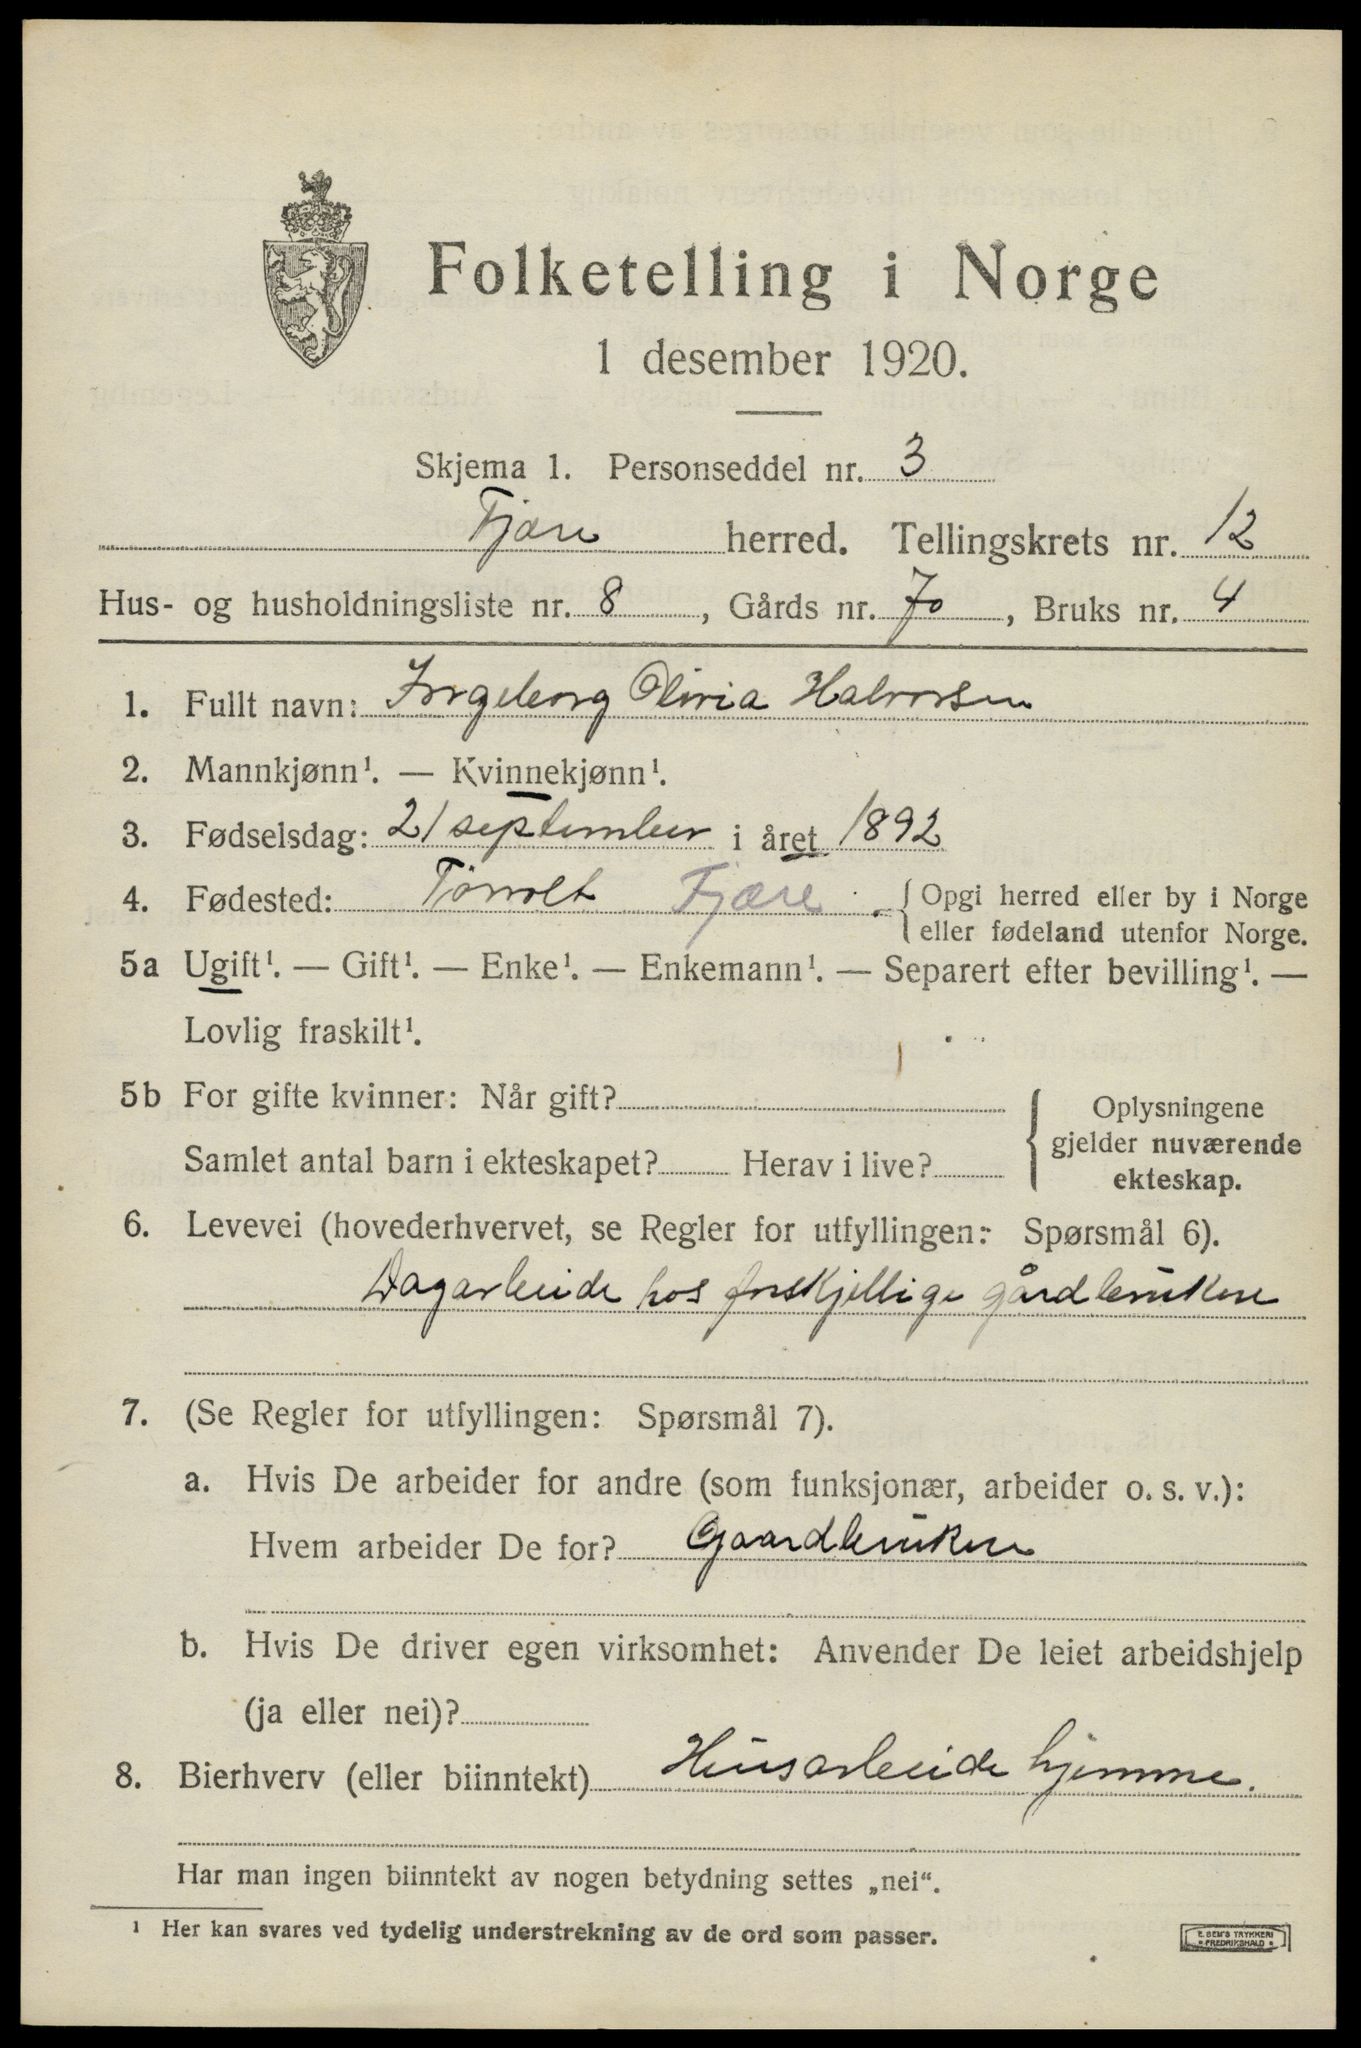 Folketelling i Norge
1 desember 1920.
Skjema 1. Personseddel nr. 3
Fjære herred. Tellingskrets nr. 12
Hus- og husholdningsliste nr. 8, Gårds nr. 70, Bruks nr. 4
1. Fullt navn: Ingeborg Olivia Halvorsen
2. Mannkjønn¹. — Kvinnekjønn¹.
3. Fødselsdag: 21 september i året 1892
4. Fødested: Fjære { Opgi herred eller by i Norge
eller fødeland utenfor Norge.
5a Ugift¹. — Gift¹. — Enke¹. — Enkemann¹. — Separert efter bevilling¹. —
Lovlig fraskilt¹.
5b For gifte kvinner: Når gift?
Samlet antal barn i ekteskapet? Herav i live?
{ Oplysningene
gjelder nuværende
ekteskap.
6. Levevei (hovederhvervet, se Regler for utfyllingen: Spørsmål 6).
Dagarbeide hos forskjellige gårdbrukere
7. (Se Regler for utfyllingen: Spørsmål 7).
a. Hvis De arbeider for andre (som funksjonær, arbeider o. s. v.):
Hvem arbeider De for? Gaardbrukere
b. Hvis De driver egen virksomhet: Anvender De leiet arbeidshjelp
(ja eller nei)?
8. Bierhverv (eller biinntekt) Husarbeide hjemme.
Har man ingen biinntekt av nogen betydning settes „nei“.
¹ Her kan svares ved tydelig understrekning av de ord som passer.
E. SEM'S TRYKKERI
• FREDRIKSHALD •